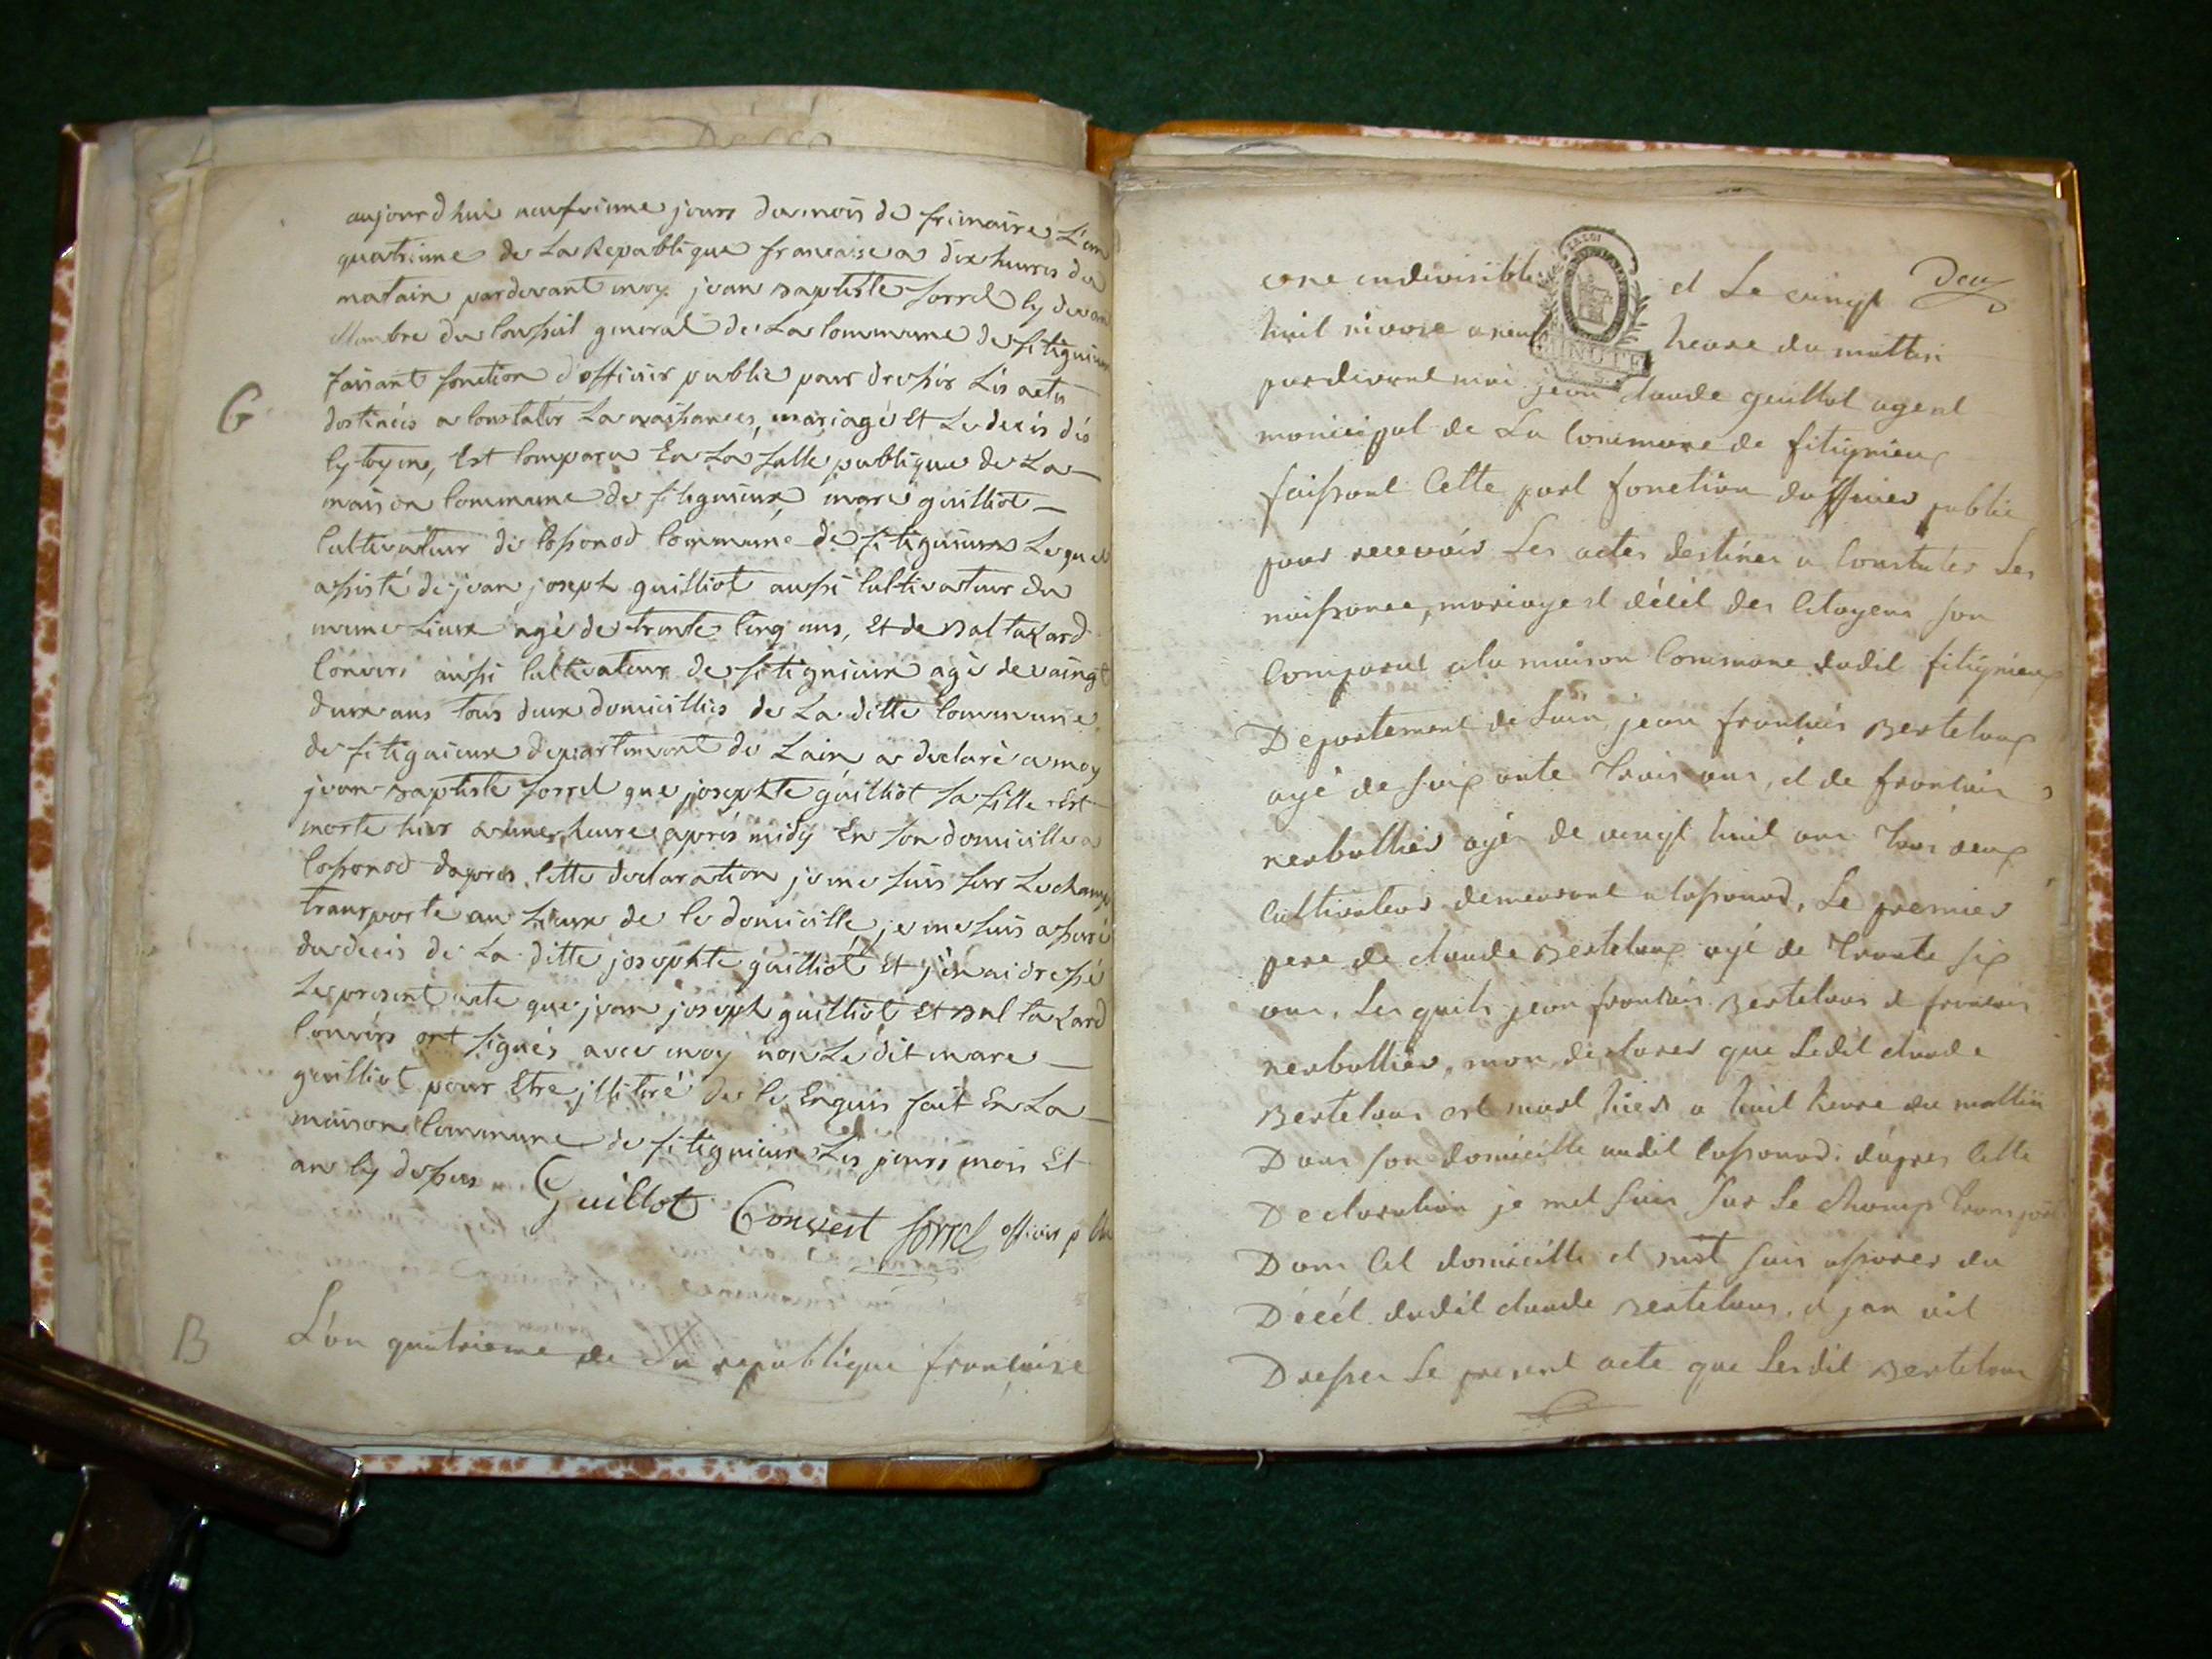 Décès
aujourdhui neufvieme jours du mois de frimaire L'an
quatrieme de La Republique francaise a dix heures du
matain pardevant moy jean Baptiste Sorrel cy devant
Membre du Conseil general de La Commune de fitignieux
faisant fonction d'officier public pour dresser Les actes
destinées a Constater La naissances, mariage et Le décès des
Cytoyens, Est Comparu En La Salle publique de La
maison Commune de fitignieux marc guilliot
Cultivateur de Cossonod Commune de fitignieux Lequel
assisté de jean joseph guilliot aussi Cultivateur du
meme Lieux agé de trente Cinq ans, Et de Baltazard
Convers aussi Cultivateur de fitignieux agé de vaingt
deux ans tous deux domicilliés de La ditte Commune
de fitignieux departement de Lain a declaré a moy
jean Baptiste Sorrel que josephte guilliot sa fille Est
morte hier a une heure après midy En son domicille a
Cossonod dapres Cette declaration je me suis sur Le champ
transporté au Lieux de Ce domicille je me suis assuré
du décès de La ditte josephte guilliot Et j'en ai dressé
Le present acte que jean joseph guilliot Et Baltazard
Convers ont signés avec moy non Le dit marc
guilliot pour Etre illitéré de Ce Enquis fait En La
maison Commune de fitignieux Les jours mois Et
an Cy dessus
Guillot Convert Sorrel officier plu
G
B
L'an quatrieme de La republique francaise
une indivisible et Le vingt Deux
huit nivose a neuf heure du mattin
MINUTE
pardevant moi jean claude guillot agent
monicipal de La Commune de fitignieux
faissant Cette part fonction dofficier public
pour recevoir Les actes destinés a Constatér Les
naissance, mariage et décét des Citoyens son
Comparut a la maison Commune dudit fitignieux
Departement de Lain jean francois Berteloux
agé de soixante trois ans, et de francois
agér de vingt huit ans tous deux
Cultivateur demeurant a Cossonod, Le premier
pere de claude Berteloux agé de trante six
ans. Les quels jean francois Bertelous et francois
mon declarer que Ledit claude
Bertelous est mort hier a huit heure du mattin
Dans son domicille audit Cossonod: dapres Cette
Declaration je met suis sur Le champ transporté
Dans Cet domicille et mét suis assurer du
Décét dudit claude Bertelous, et jan ait
Dresser Le present acte que Lesdit Bertelous